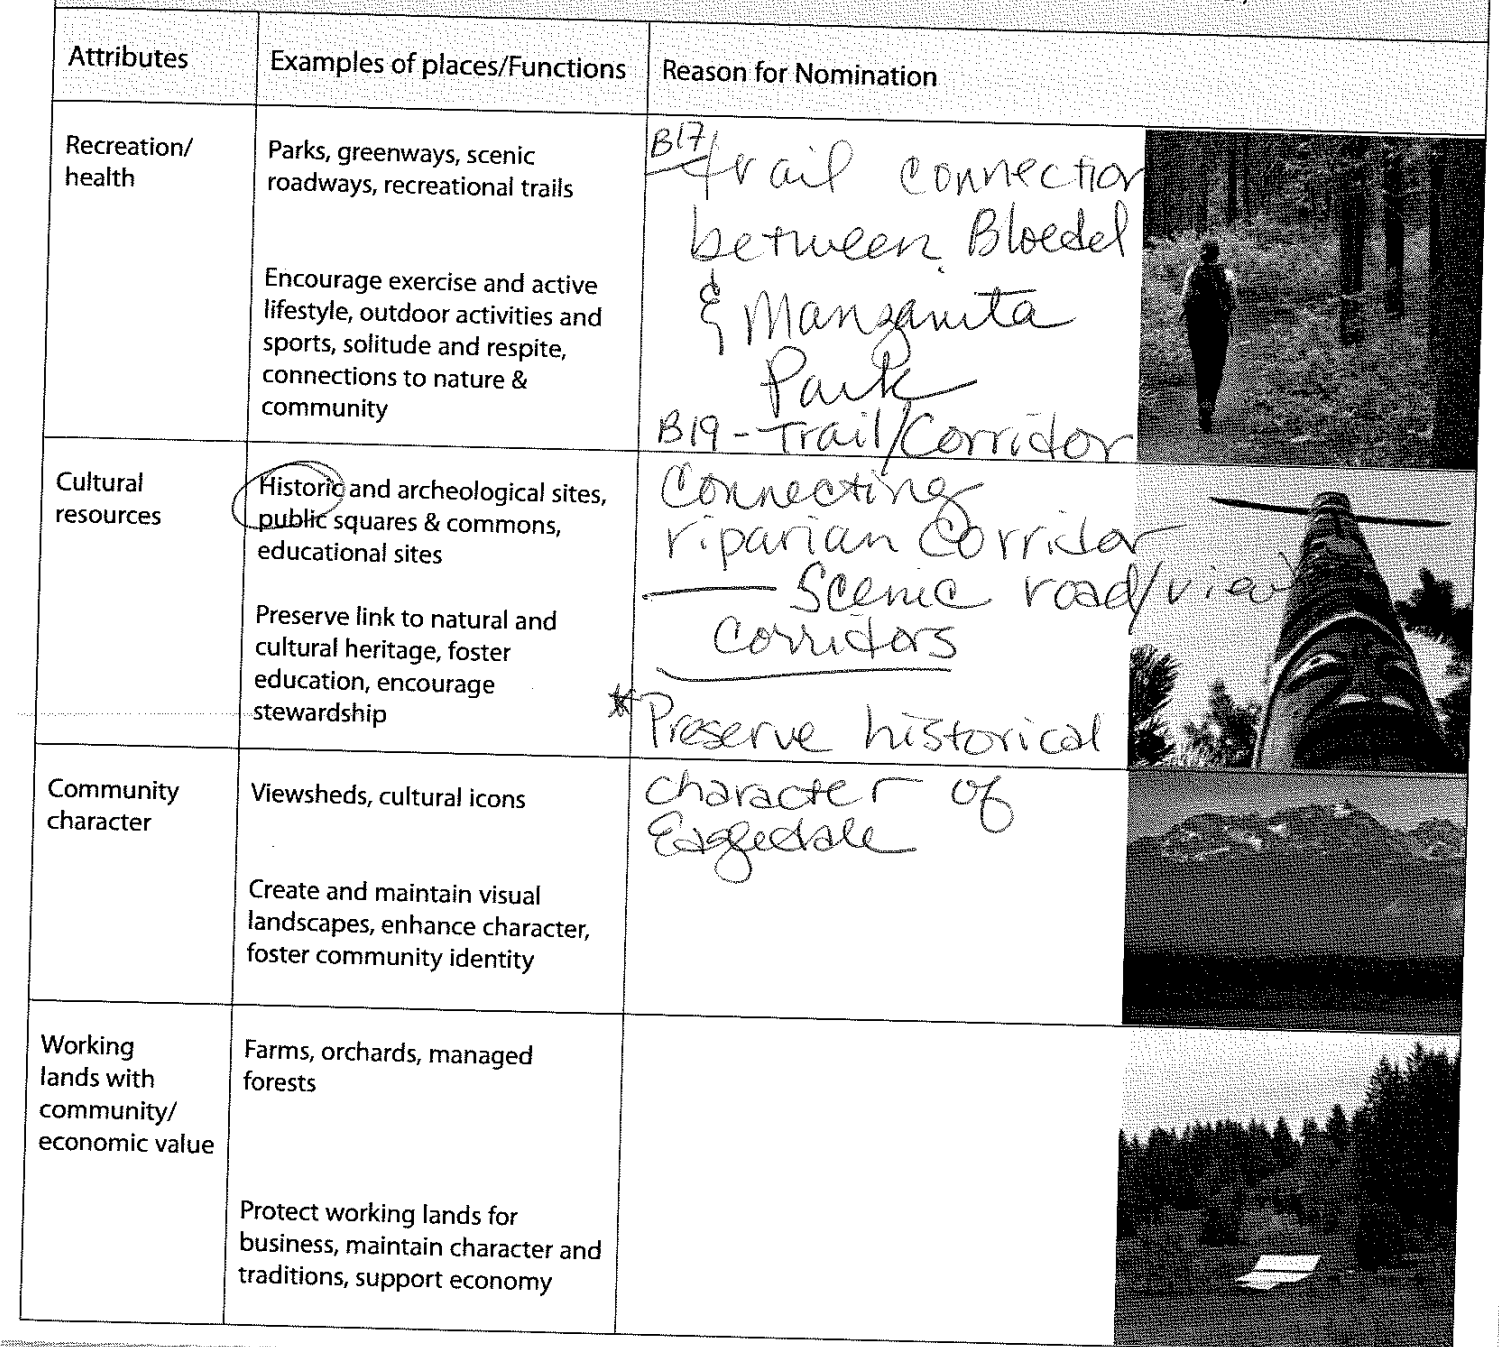 Attributes
Examples of places/Functions
Reason for Nomination
Recreation/
health
Parks, greenways, scenic
roadways, recreational trails
Encourage exercise and active
lifestyle, outdoor activities and
sports, solitude and respite,
connections to nature &
community
B17
trail connection
between Bloedel
& Manzanita
Park
B19 - Trail/Corridor
Cultural
resources
Historic and archeological sites,
public squares & commons,
educational sites
Preserve link to natural and
cultural heritage, foster
education, encourage
stewardship
Connecting
riparian Corridor
— Scenic road/view
Corridors
* Preserve historical
Community
character
Viewsheds, cultural icons
Create and maintain visual
landscapes, enhance character,
foster community identity
character of
Eagledale
Working
lands with
community/
economic value
Farms, orchards, managed
forests
Protect working lands for
business, maintain character and
traditions, support economy